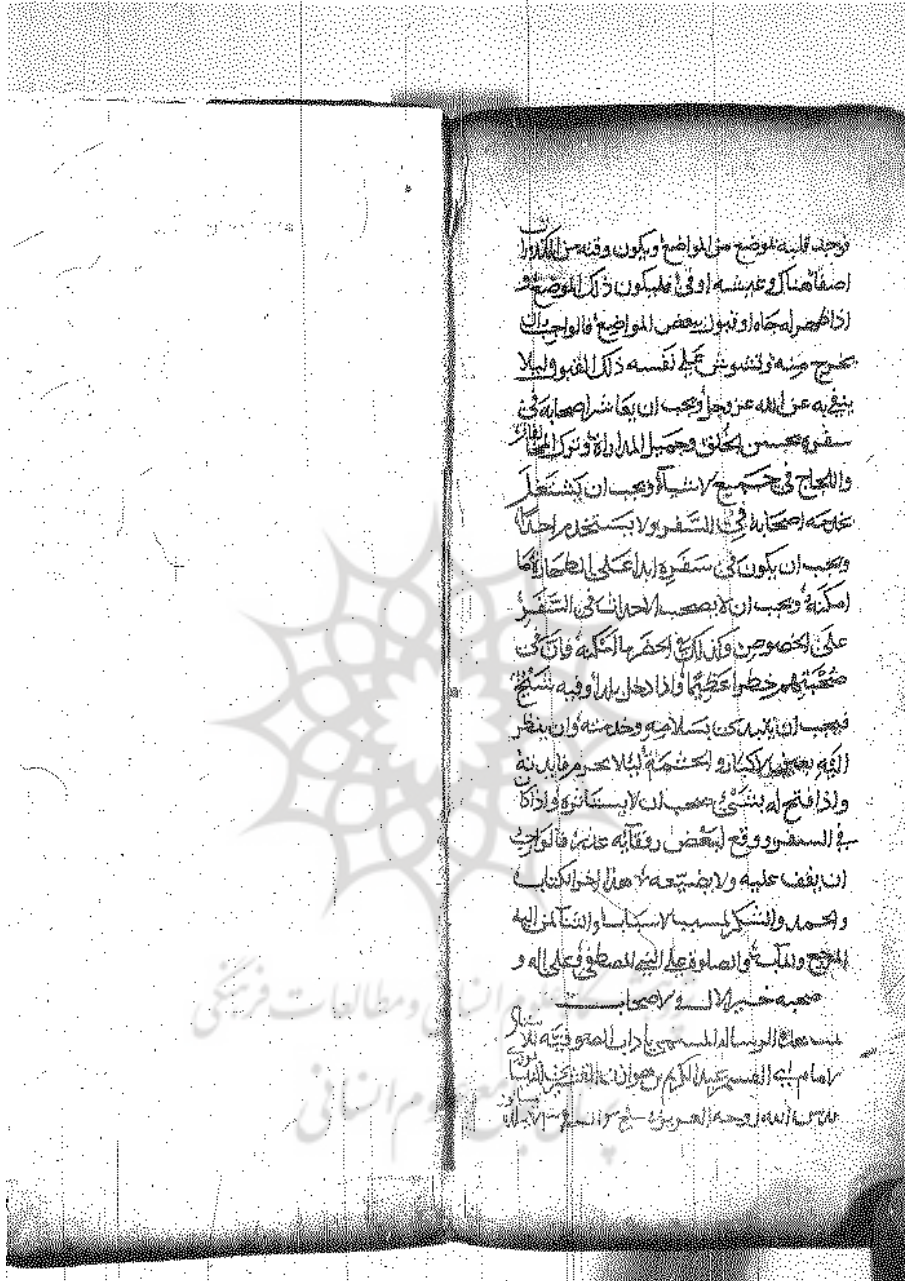 فوجد قلبه بموضع من المواضع ويكون وقته من الكدورات
اصفا هناك وعيشه اوفى فليكون ذلك الموضع و
اذا ظهر له جاه او قبول ببعض المواضع فالواجب ان
يخرج منه ويشوش على نفسه ذلك القبول ليلا
به عن الله عز وجل ويجب ان يعاشر اصحابه في
سفره بحسن الخلق وجميل المداراة وترك
واللجاج في جميع الاشياء ويجب ان يشتغل
بخدمة اصحابه في السفر ولا يستخدم احدا
ويجب ان يكون في سفره ابدا على الطهارة ما
امكنه ويجب ان لا يصحب الاحداث في السفر
على الخصوص وكذلك في الحضر ما امكنه فان في
صحبتهم خطرا عظيما واذا دخل بلدا وفيه شيخ
فيجب ان يبتدئ بسلامه وخدمته وان ينظر
اليه بعين الاكبار والحشمة ليلا يحرم فايدته
واذا فتح له بشيء يجب ان لا يستاثره واذا كان
في السفر ووقع لبعض رفقايه عذر فالواجب
ان يقف عليه ولا يضيعه هذا اخر الكتاب
والحمد والشكر لمسبب الاسباب والثنا لمن اليه
المرجع والمآب والصلوة على النبي المصطفى وعلى اله و
صحبه خير الال والاصحاب
الرسالة المسمى باداب الصوفية
للامام ابي القسم عبد الكريم بن هوازن القشيري
قدس الله روحه العزيز
پژوهشگاه علوم انسانی و مطالعات فرهنگی
پرتال جامع علوم انسانی